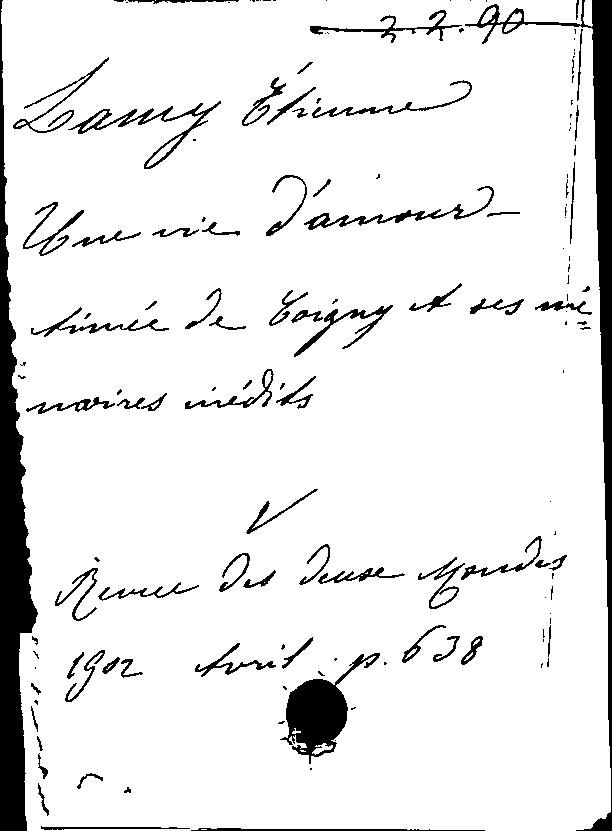 2.2.90
Lamy Étienne
Une vie d'amour –
Aimée de Coigny et ses mé
moires inédits
V
Revue des deux Mondes
1902 Avril p. 638